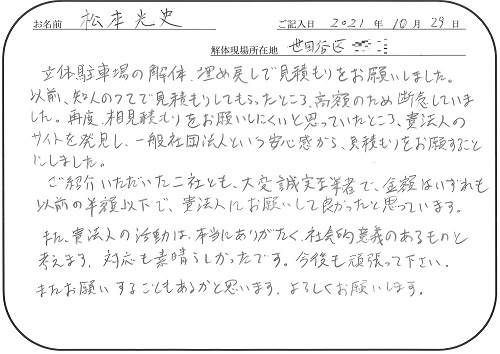 お名前 松本光史 ご記入日 2021 年 10 月 29 日
解体現場所在地 世田谷区
立体駐車場の解体、埋め戻しで見積もりをお願いしました。
以前、知人のつてで見積もりしてもらったところ、高額のため断念していま
した。再度、相見積もりをお願いしにくいと思っていたところ、貴法人の
サイトを発見し、一般社団法人という安心感から、見積もりをお願いすること
にしました。
ご紹介いただいた二社とも、大変誠実な業者で、金額はいずれも
以前の半額以下で、貴法人にお願いして良かったと思っています。
また、貴法人の活動は、本当にありがたく、社会的意義のあるものと
考えます。対応も素晴らしかったです。今後も頑張って下さい。
またお願いすることもあるかと思います。よろしくお願いします。